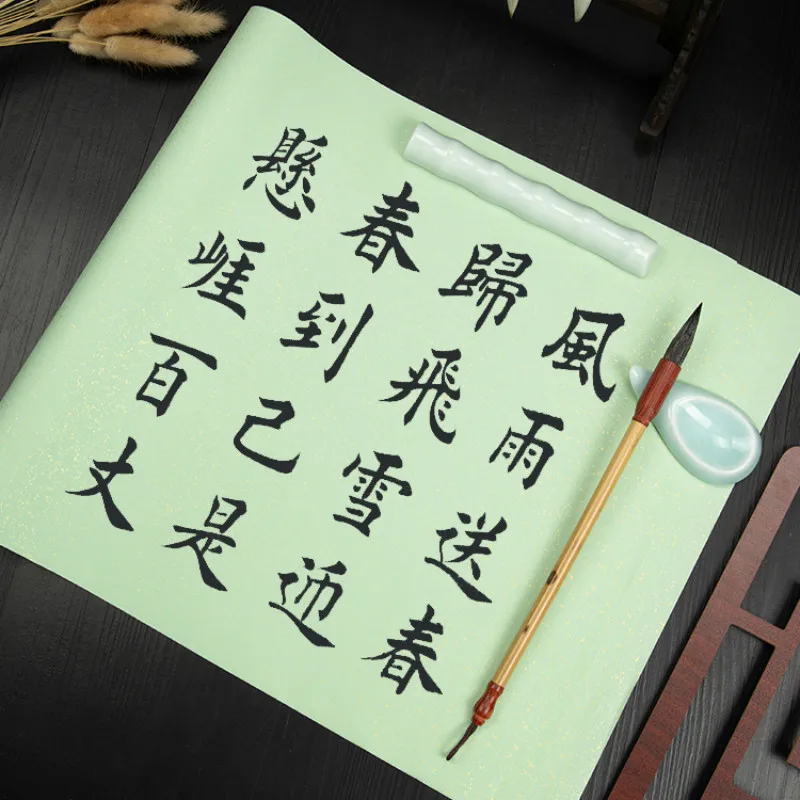 風雨送春
歸飛雪迎
春到己是
懸崖百丈